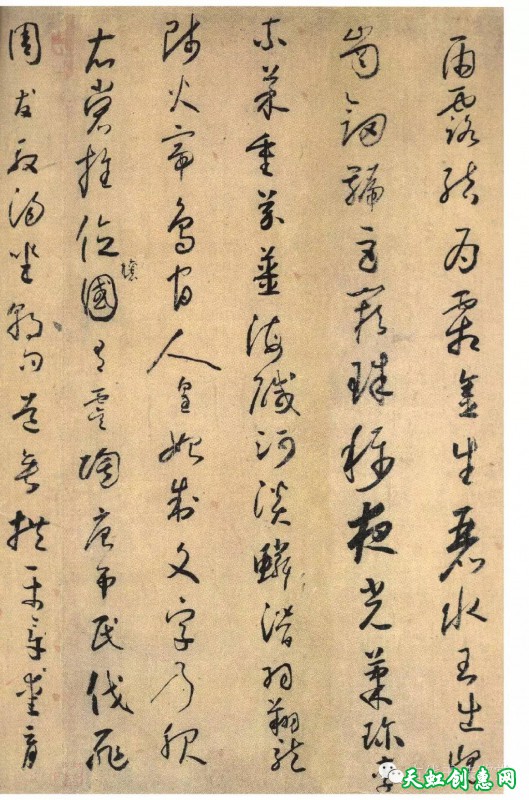 雨露結為霜金生麗水玉出崑
崗劍號巨闕珠稱夜光菓珍李
柰菜重芥薑海鹹河淡鱗潛羽翔龍
師火帝鳥官人皇始制文字乃服
衣裳推位讓國有虞陶唐弔民伐罪
周發殷湯坐朝問道垂拱平章愛育
天虹创惠网